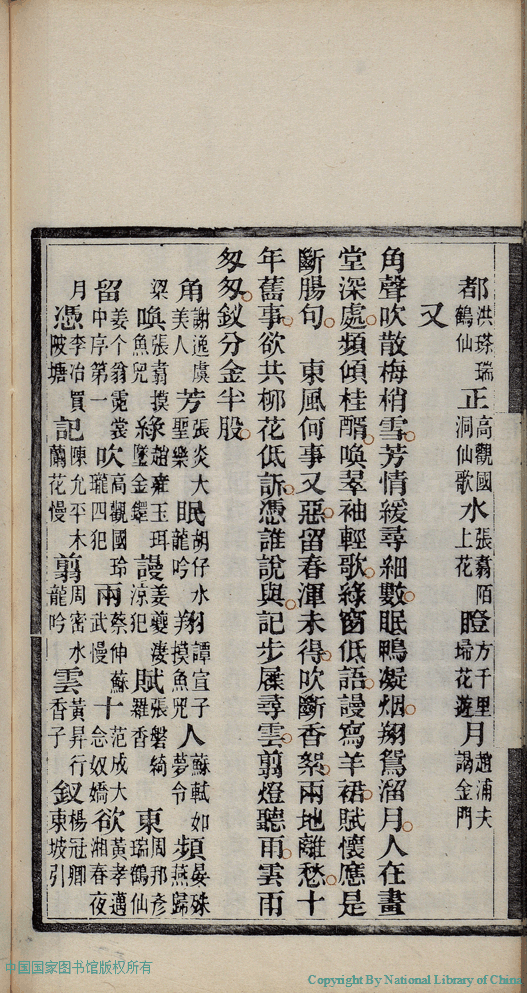 都洪瑹瑞鶴仙正高觀國洞仙歌水張翥陌上花瞪方千里埽花遊月趙浦夫謁金門
又
角聲吹散梅梢雪芳情緩尋細數眠鴨凝烟翔鴛溜月人在畫
堂深處頻傾桂醑喚翠袖輕歌綠窗低語謾寫羊裙賦懷應是
斷腸句　東風何事又惡留春渾未得吹斷香絮兩地離愁十
年舊事欲共柳花低訴憑誰說與記步屧尋雲翦燈聽雨雲雨
匆匆釵分金半股
角謝逸虞美人芳張炎大聖樂眠胡仔水龍吟翔譚宣子摸魚兒人蘇軾如夢令頻晏殊燕歸
梁喚張翥摸魚兒綠趙雍玉珥墜金鐶謾姜夔淒涼犯賦張磐綺羅香東周邦彥瑞鶴仙
留姜个翁霓裳中序第一吹高觀國玲瓏四犯兩蔡伸蘇武慢十范成大念奴嬌欲黃孝邁湘春夜
月憑李冶買陂塘記陳允平木蘭花慢翦周密水龍吟雲黃昇行香子釵楊冠卿東坡引
中国国家图书馆版权所有
Copyright By National Library of China